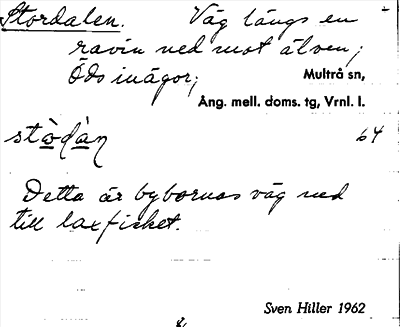 Stordalen. Väg längs en
ravin ned mot älven;
Öds inägor; Multrå sn,
Ång. mell. doms. tg, Vrnl. l.
stòdàn 64
Detta är bybornas väg ned
till laxfisket.
Sven Hiller 1962